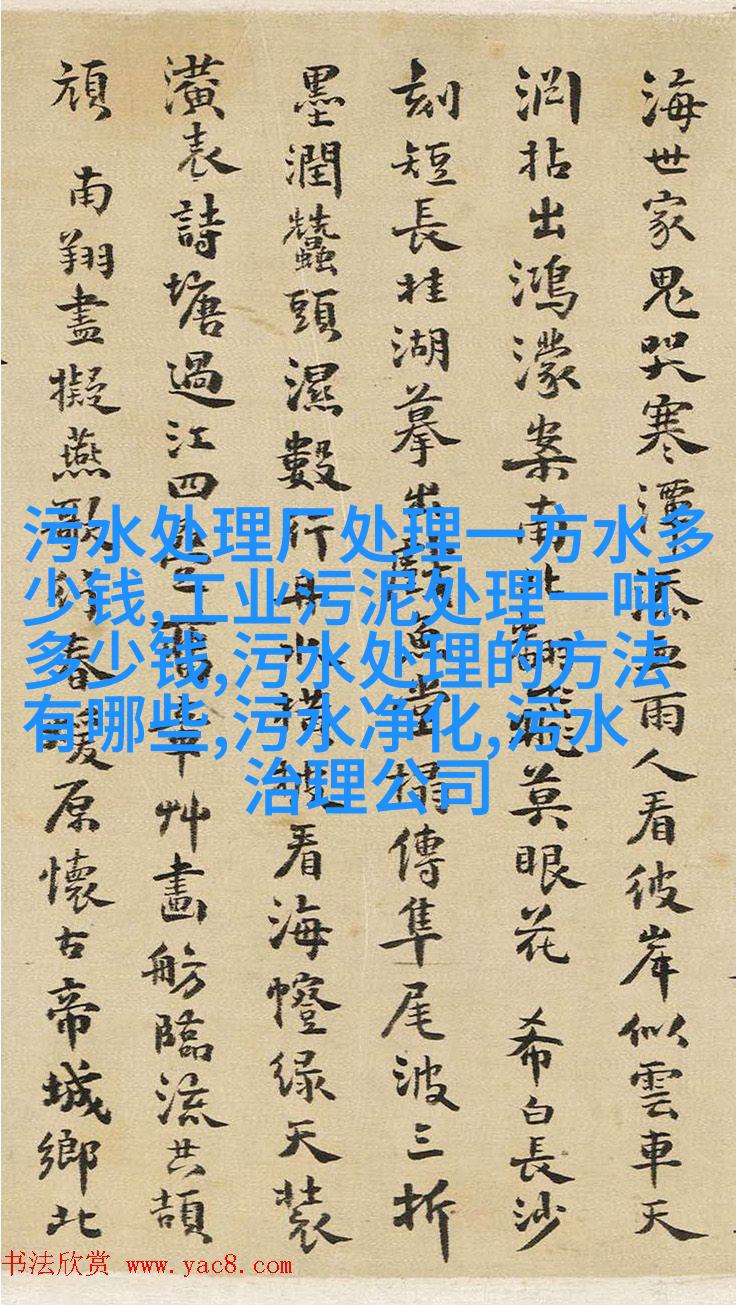 海世家鬼哭寒潭雨人看彼岸似雲車天
淵拈出鴻濛案南北飛莫眼花 希白長沙
刻短長桂湖摹出魚堂榻傳隼尾波三折
墨潤蠶頭濕數行丹水橫看海幢緑天裝
潢表詩塘過江四華艸畫舫臨流共頡
頏 南翔盡擬燕歌春暖原懷古帝城鄉北
污水处理厂处理一方水多
少钱,工业污泥处理一吨
多少钱,污水处理的方法
有哪些,污水净化,污水
治理公司
书法欣赏 www.yac8.com